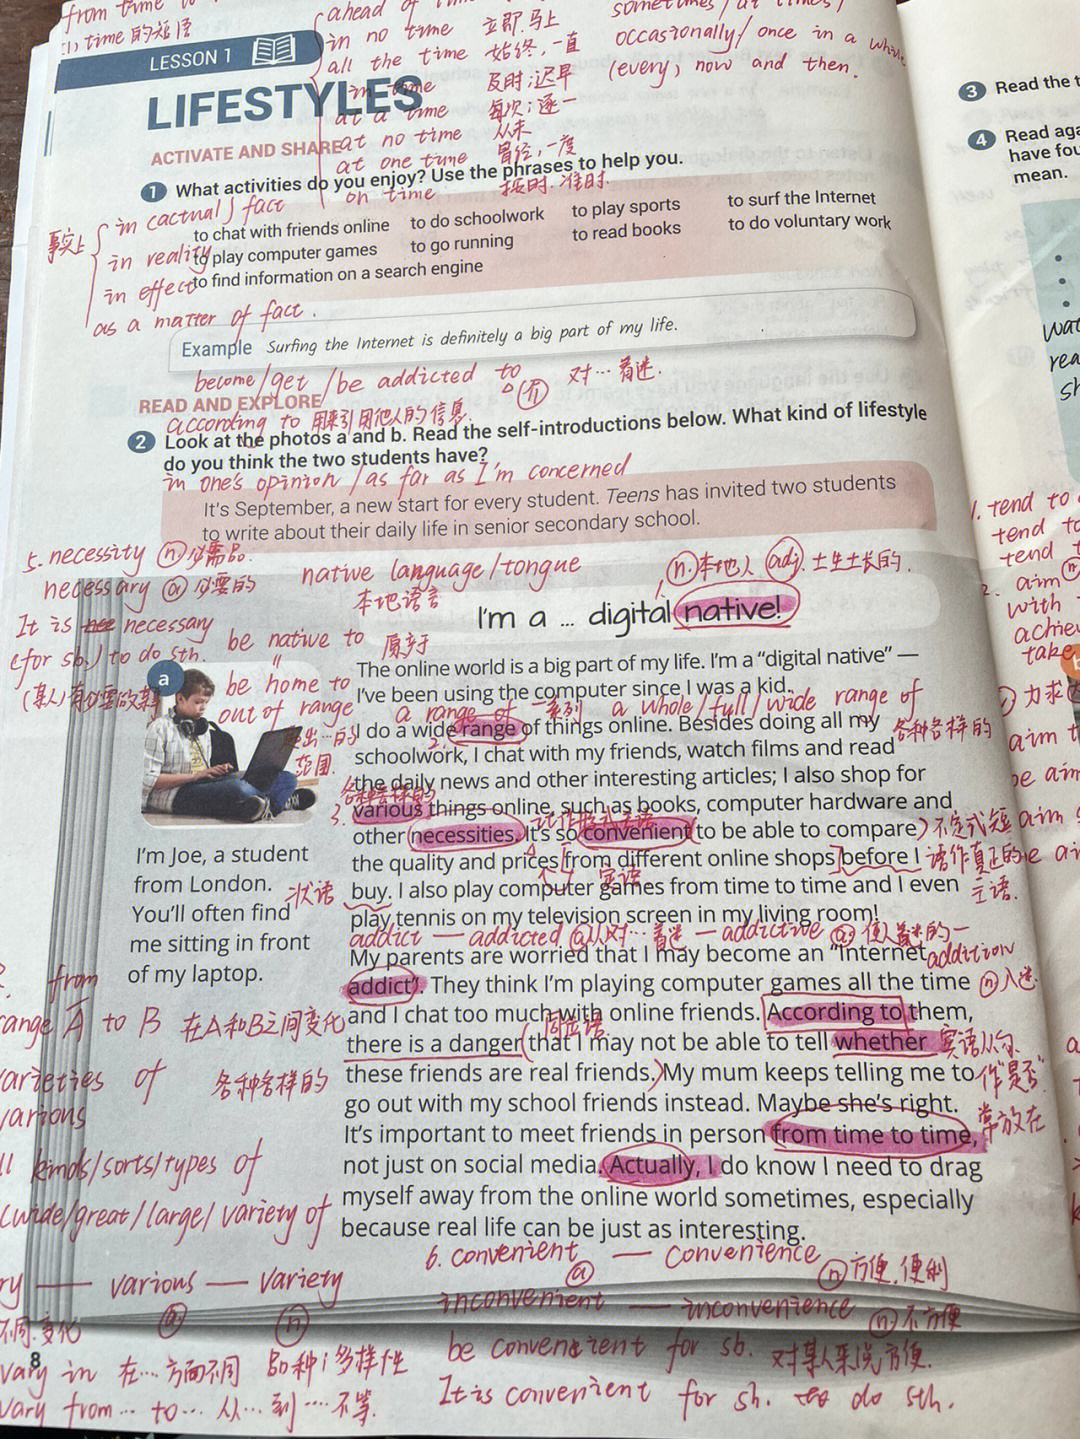 from time to
ahead of time
sometimes / at times /
(1) time 的短语
in no time 立即,马上
occasionally / once in a while
all the time 始终,一直
(every) now and then.
in time 及时;迟早
LESSON 1
LIFESTYLES
at a time 每次;逐一
at no time 从未
at one time 曾经,一度
on time 按时.准时
ACTIVATE AND SHARE
1 What activities do you enjoy? Use the phrases to help you.
事实上
in (actual) fact
in reality
in effect
as a matter of fact.
to chat with friends online to do schoolwork to play sports to surf the Internet
to play computer games to go running to read books to do voluntary work
to find information on a search engine
Example Surfing the Internet is definitely a big part of my life.
become/get/be addicted to (介) 对…着迷.
READ AND EXPLORE
according to 用来引用他人的信息
2 Look at the photos a and b. Read the self-introductions below. What kind of lifestyle
do you think the two students have?
in one's opinion / as far as I'm concerned
It's September, a new start for every student. Teens has invited two students
to write about their daily life in senior secondary school.
5. necessity n 必需品.
necessary a 必要的
It is necessary
(for sb.) to do sth.
(某人)有必要做某事
native language/tongue
本地语言
n. 本地人 adj. 土生土长的
be native to 原产于
be home to
out of range
超出…的
范围.
I'm a ... digital native!
The online world is a big part of my life. I'm a “digital native” —
I've been using the computer since I was a kid.
a range of 一系列 a whole/full/wide range of
各种各样的
I do a wide range of things online. Besides doing all my
schoolwork, I chat with my friends, watch films and read
the daily news and other interesting articles; I also shop for
各种各样的
3. various things online, such as books, computer hardware and
it作形式主语
other necessities. It's so convenient to be able to compare
不定式短
the quality and prices from different online shops before I
语作真正的
主语.
定语
状语
buy. I also play computer games from time to time and I even
play tennis on my television screen in my living room!
addict — addicted a 对…着迷 — addictive a 使人着迷的 —
addiction
n 入迷.
My parents are worried that I may become an “Internet
addict”. They think I'm playing computer games all the time
and I chat too much with online friends. According to them,
同位语
there is a danger that I may not be able to tell whether
宾语从句
作“是否”
常放在
these friends are real friends. My mum keeps telling me to
go out with my school friends instead. Maybe she's right.
It's important to meet friends in person from time to time,
not just on social media. Actually, I do know I need to drag
myself away from the online world sometimes, especially
because real life can be just as interesting.
a
I'm Joe, a student
from London.
You'll often find
me sitting in front
of my laptop.
from
range A to B 在A和B之间变化
varieties of 各种各样的
various
kinds/sorts/types of
(wide/great/large/ variety of
various — variety
a n
不同.变化
vary in 在…方面不同 品种;多样性
vary from … to … 从…到…不等.
6. convenient — convenience
a n 方便,便利
inconvenient — inconvenience n 不方便
be convenient for sb. 对某人来说方便.
It is convenient for sb. to do sth.
8
3 Read the
4 Read aga
have fou
mean.
1. tend to
tend to
tend
2. aim n
with
achie
take
力求
aim t
be aim
aim